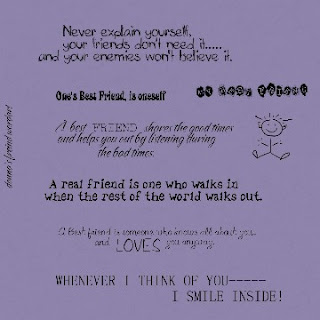 Never explain yourself.
your friends don't need it.....
and your enemies won't believe it.
One's Best Friend, is oneself
My Best Friend
A best FRIEND shares the good times
and helps you out by listening during
the bad times.
A real friend is one who walks in
when the rest of the world walks out.
A Best friend is someone who knows all about you...
and LOVES you anyway.
WHENEVER I THINK OF YOU-----
I SMILE INSIDE!